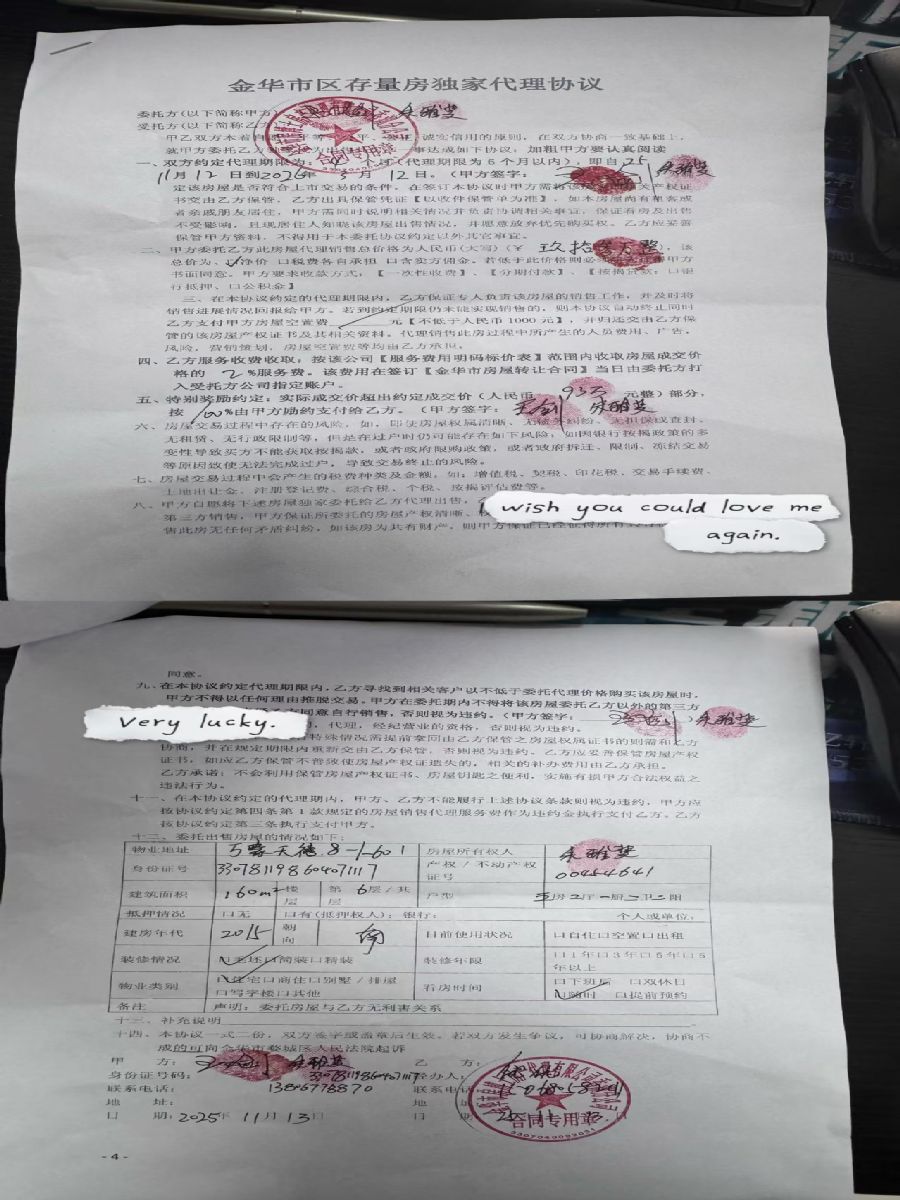 金华市区存量房独家代理协议
委托方(以下简称甲方)
受托方(以下简称乙方)
诚实信用的原则，在双方协商一致基础上，
就甲方委托乙方 事达成如下协议，加粗甲方要认真阅读
一、双方约定代理期限为: 个月(代理期限为6个月以内)，即自 25
11月12日到2026年3月12日。(甲方签字:
定该房屋是否符合上市交易的条件，在签订本协议时甲方需将该 相关产权证
书交由乙方保管，乙方出具保管凭证【以收件保管单为准】，如本房屋尚有租客或
者亲戚朋友居住，甲方需同时说明相关情况并负责协调相关事宜，保证看房及出售
不受影响，且现居住人知晓该房屋出售情况，并愿意放弃优先购买权。乙方应妥善
保管甲方资料，不得用于本委托协议约定以外其它事宜。
二、甲方委托乙方此房屋代理销售总价格为人民币(大写)(¥ 玖拾 万 )，该
总价为、☑净价 口税费各自承担 口含卖方佣金。若低于此价格则必须 甲方
书面同意。甲方要求收款方式：【一次性收费】、【分期付款】、【按揭贷款：口银
行抵押、口公积金】
三、在本协议约定的代理期限内，乙方保证专人负责该房屋的销售工作，并及时将
销售进展情况回报给甲方。若到约定期限仍未能实现销售的，则本协议自动终止同时
乙方支付甲方房屋空置费 元【不低于人民币1000元】，并归还交由乙方保
管的该房屋产权证书及其相关资料。代理销售此房过程中所产生的人员费用、广告、
风险、营销策划、房屋空置费等均由乙方承担。
四、乙方服务收费收取：按该公司【服务费用明码标价表】范围内收取房屋成交价
格的 2 %服务费。该费用在签订【金华市房屋转让合同】当日由委托方打
入受托方公司指定账户。
五、特别奖励约定：实际成交价超出约定成交价(人民币 93万 元整)部分，
按 100%由甲方励约支付给乙方。(甲方签字:
六、房屋交易过程中存在的风险，如，即使房屋权属清晰、无债务纠纷、无担保或查封、
无租赁、无行政限制等，但是在过户时仍可能存在如下风险：如因银行按揭政策的多
变性导致买方不能获取按揭款，或者政府限购政策，或者政府拆迁、限制、冻结交易
等原因致使无法完成过户，导致交易终止的风险。
七、房屋交易过程中会产生的税费种类及金额，如：增值税、契税、印花税、交易手续费、
土地出让金、注册登记费、综合税、个税、按揭评估费等。
八、甲方自愿将下述房屋独家委托给乙方代理出售，
第三方销售，甲方保证所委托的房屋产权清晰、
售此房无任何矛盾纠纷，如该房为共有财产，则甲方保证已经征得所有
I wish you could love me
again.
同意。
九、在本协议约定代理期限内，乙方寻找到相关客户以不低于委托代理价格购买该房屋时，
甲方不得以任何理由推脱交易。甲方在委托期内不得将该房屋委托乙方以外的第三方
同意自行销售，否则视为违约。(甲方签字:
very lucky.
、代理，经纪营业的资格，否则视为违约。
特殊情况需提前拿回由乙方保管之房屋权属证书的则需和乙方
协商，并在规定期限内重新交由乙方保管，否则视为违约。乙方应妥善保管房屋产权
证书，如应乙方保管不善致使房屋产权证遗失的，相关的补办费用由乙方承担。
乙方承诺：不会利用保管房屋产权证书、房屋钥匙之便利，实施有损甲方合法权益之
违法行为。
十一、在本协议约定的代理期内，甲方、乙方不能履行上述协议条款则视为违约，甲方应
按协议约定第四条第1款规定的房屋销售代理服务费作为违约金执行支付乙方。乙方
按协议约定第三条执行支付甲方。
十二、委托出售房屋的情况如下：
物业地址 天德 8-1-601 房屋所有权人
身份证号 330781198604071117 产权/不动产权证号 00454641
建筑面积 160m² 楼层 第6层/共 层 户型 房2厅一厨 卫 阳
抵押情况 口无 口有(抵押权人)：银行： 个人或单位：
建房年代 2015 朝向 南 目前使用状况 口自住口空置口出租
装修情况 ☑毛坯口简装口精装 装修年限 口1年口3年口5年口5年以上
物业类别 ☑住宅口商住口别墅/排屋口写字楼口其他 看房时间 口下班后 口双休日 ☑随时 口提前预约
备注 声明：委托房屋与乙方无利害关系
十三、补充说明
十四、本协议一式二份，双方签字或盖章后生效。若双方发生争议，可协商解决，协商不
成的可向金华市婺城区人民法院起诉
甲 方： 乙 方：
身份证号码： 330781198604071117 经办人：
联系电话： 13806778870 联系电
地 址： 地
日 期：2025年11月13日 日
合同专用章
- 4 -